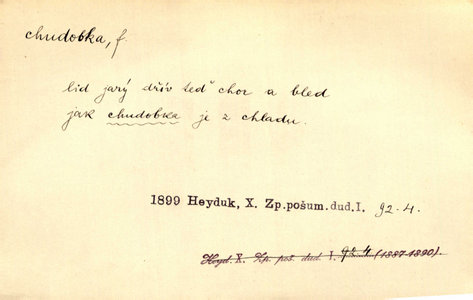 chudobka, f.
lid jarý dřív teď chor a bled
jak chudobka je z chladu.
1899 Heyduk, X. Zp.pošum.dud.I. 92-4.
Heyd. X. Zp. poš. dud. I. 92 4 (1887-1890).